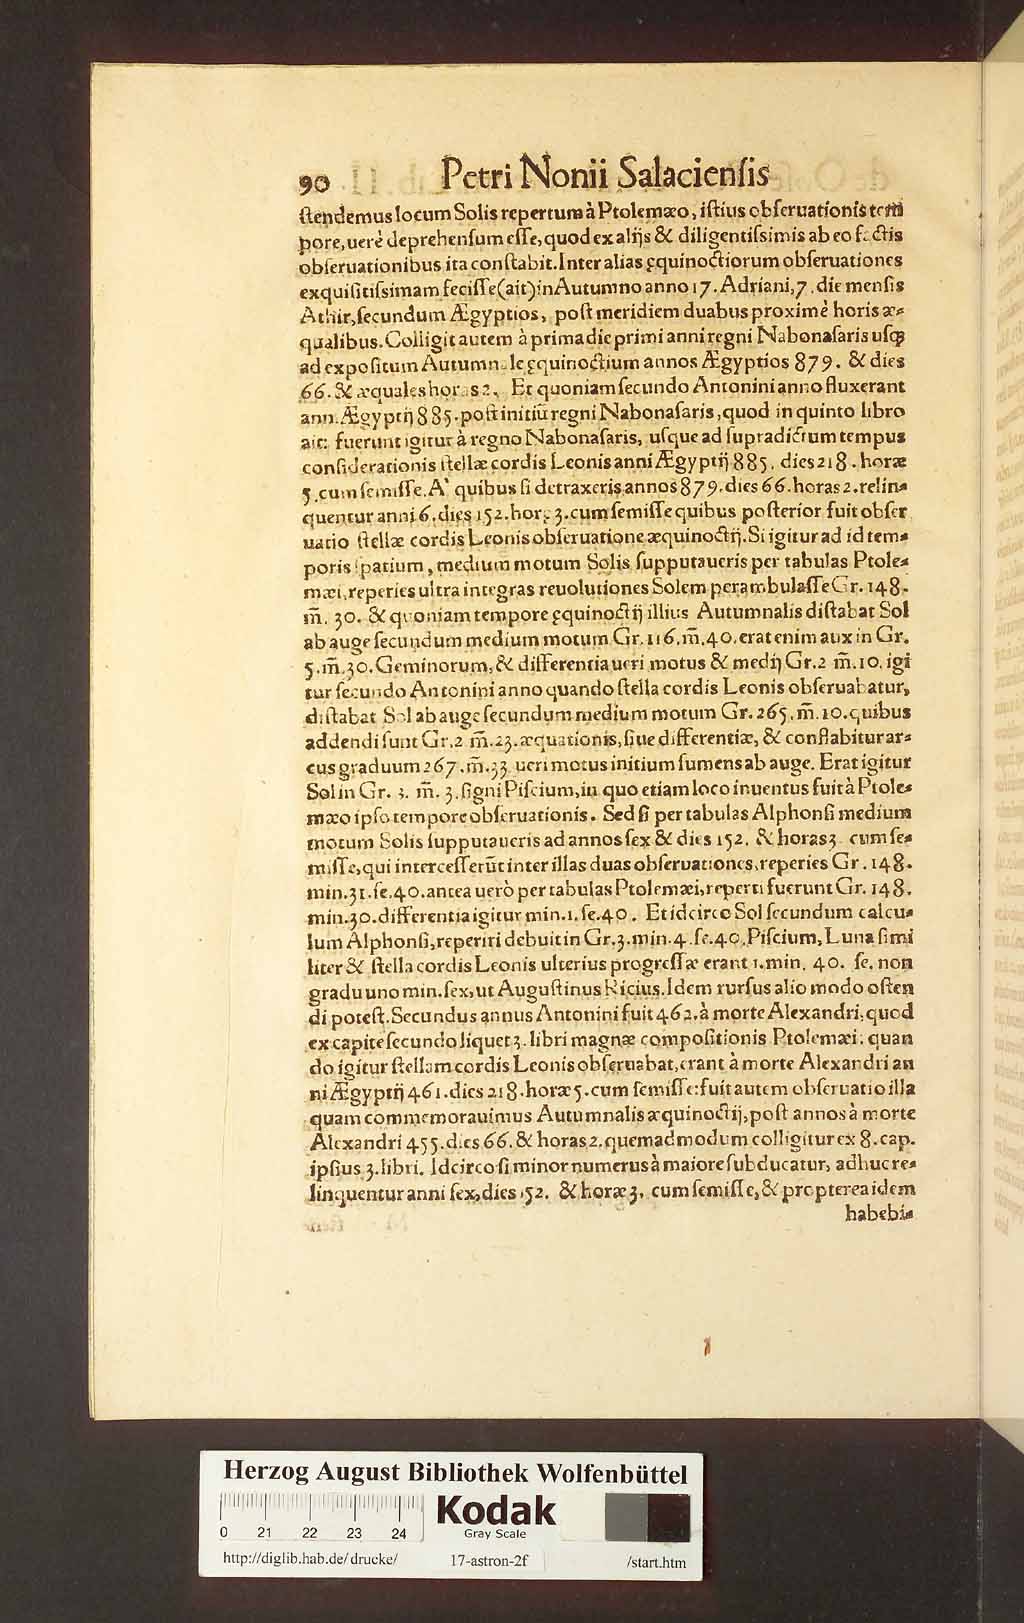 90 Petri Nonii Salaciensis
ſtendemus locum Solis repertum à Ptolemæo, iſtius obſeruationis tem
pore, uerè deprehenſum eſſe, quod ex alijs & diligentiſsimis ab eo factis
obſeruationibus ita conſtabit. Inter alias ęquinoctiorum obſeruationes
exquiſitiſsimam feciſſe (ait) in Autumno anno 17. Adriani, 7. die menſis
Athir, ſecundum Ægyptios, poſt meridiem duabus proximè horis æ-
qualibus. Colligit autem à prima die primi anni regni Nabonaſaris uſq3
ad expoſitum Autumnale ęquinoctium annos Ægyptios 879. & dies
66. & æquales horas 2. Et quoniam ſecundo Antonini anno fluxerant
ann. Ægyptij 885. poſt initiū regni Nabonaſaris, quod in quinto libro
ait: fuerunt igitur à regno Nabonaſaris, uſque ad ſupradictum tempus
conſiderationis ſtellæ cordis Leonis anni Ægyptij 885. dies 218. horæ
5. cum ſemiſſe. A' quibus ſi detraxeris annos 879. dies 66. horas 2. relin-
quentur anni 6. dies 152. horę 3. cum ſemiſſe quibus poſterior fuit obſer
uatio ſtellæ cordis Leonis obſeruatione æquinoctij. Si igitur ad id tem-
poris ſpatium, medium motum Solis ſupputaueris per tabulas Ptole-
mæi, reperies ultra integras reuolutiones Solem perambulaſſe Gr. 148.
m̄. 30. & quoniam tempore ęquinoctij illius Autumnalis diſtabat Sol
ab auge ſecundum medium motum Gr. 116. m̄. 40. erat enim aux in Gr.
5. m̄. 30. Geminorum, & differentia ueri motus & medij Gr. 2 m̄. 10. igi
tur ſecundo Antonini anno quando ſtella cordis Leonis obſeruabatur,
diſtabat Sol ab auge ſecundum medium motum Gr. 265. m̄. 10. quibus
addendi ſunt Gr. 2 m̄. 23. æquationis, ſiue differentiæ, & conflabitur ar-
cus graduum 267. m̄. 33 ueri motus initium ſumens ab auge. Erat igitur
Sol in Gr. 3. m̄. 3. ſigni Piſcium, in quo etiam loco inuentus fuit à Ptole-
mæo ipſo tempore obſeruationis. Sed ſi per tabulas Alphonſi medium
motum Solis ſupputaueris ad annos ſex & dies 152. & horas 3. cum ſe-
miſſe, qui interceſſerūt inter illas duas obſeruationes, reperies Gr. 148.
min. 31. ſe. 40. antea uerò per tabulas Ptolemæi, reperti fuerunt Gr. 148.
min. 30. differentia igitur min. 1. ſe. 40. Et idcirco Sol ſecundum calcu-
lum Alphonſi, reperiri debuit in Gr. 3. min. 4. ſe. 40. Piſcium, Luna ſimi
liter & ſtella cordis Leonis ulterius progreſſæ erant 1. min. 40. ſe. non
gradu uno min. ſex, ut Auguſtinus Ricius. Idem rurſus alio modo oſten
di poteſt. Secundus annus Antonini fuit 462. à morte Alexandri, quod
ex capite ſecundo liquet 3. libri magnæ compoſitionis Ptolemæi: quan
do igitur ſtellam cordis Leonis obſeruabat, erant à morte Alexandri an
ni Ægyptij 461. dies 218. horæ 5. cum ſemiſſe: fuit autem obſeruatio illa
quam commemorauimus Autumnalis æquinoctij, poſt annos à morte
Alexandri 455. dies 66. & horas 2. quemadmodum colligitur ex 8. cap.
ipſius 3. libri. Idcirco ſi minor numerus à maiore ſubducatur, adhuc re-
linquentur anni ſex, dies 152. & horæ 3. cum ſemiſſe, & propterea idem
habebi-
Herzog August Bibliothek Wolfenbüttel
0 21 22 23 24
Kodak
Gray Scale
http://diglib.hab.de/drucke/ 17-astron-2f /start.htm